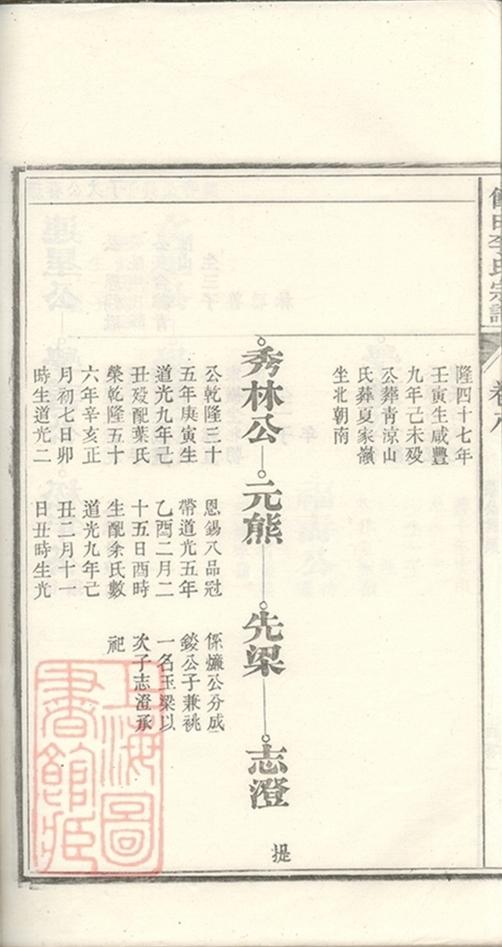 李氏宗譜
卷八
隆四十七年
壬寅生咸豐
九年己未殁
公葬青涼山
氏葬夏家嶺
坐北朝南
秀林公
公乾隆三十
五年庚寅生
道光九年己
丑殁配葉氏
榮乾隆五十
六年辛亥正
月初七日卯
時生道光二
元熊
恩錫八品冠
帶道光五年
乙酉二月二
十五日酉時
生配余氏數
道光九年己
丑二月十一
日丑時生光
先梁
係公分成
公子兼祧
一名玉梁以
次子志澄承
祀
志澄
提
上海圖
書館藏